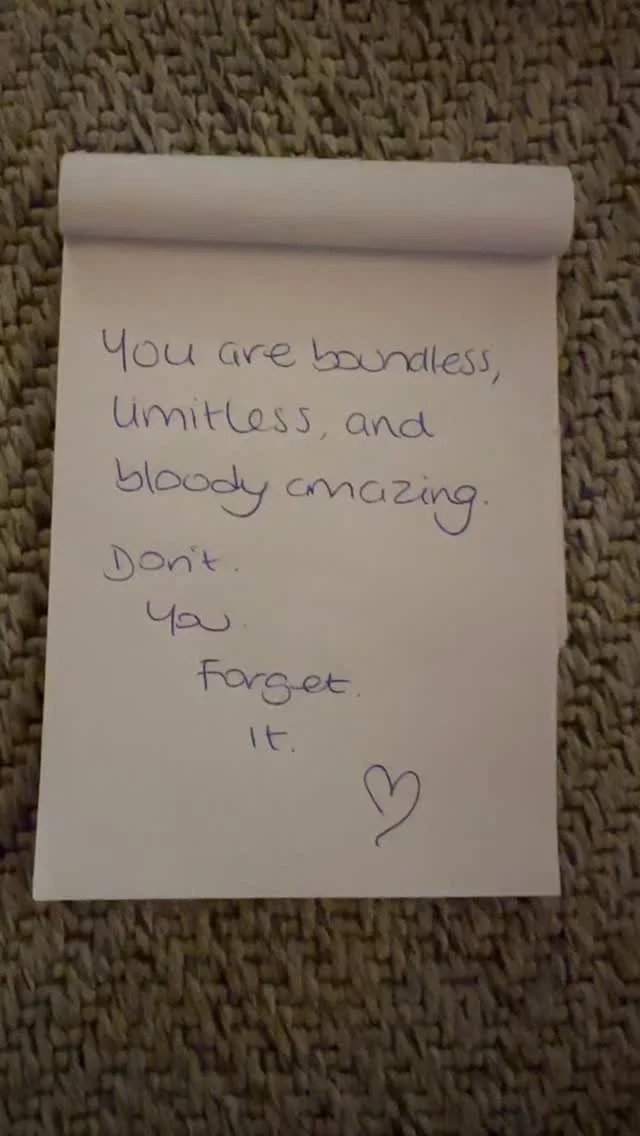 You are boundless,
limitless, and
bloody amazing.
Don't.
You.
Forget.
It.